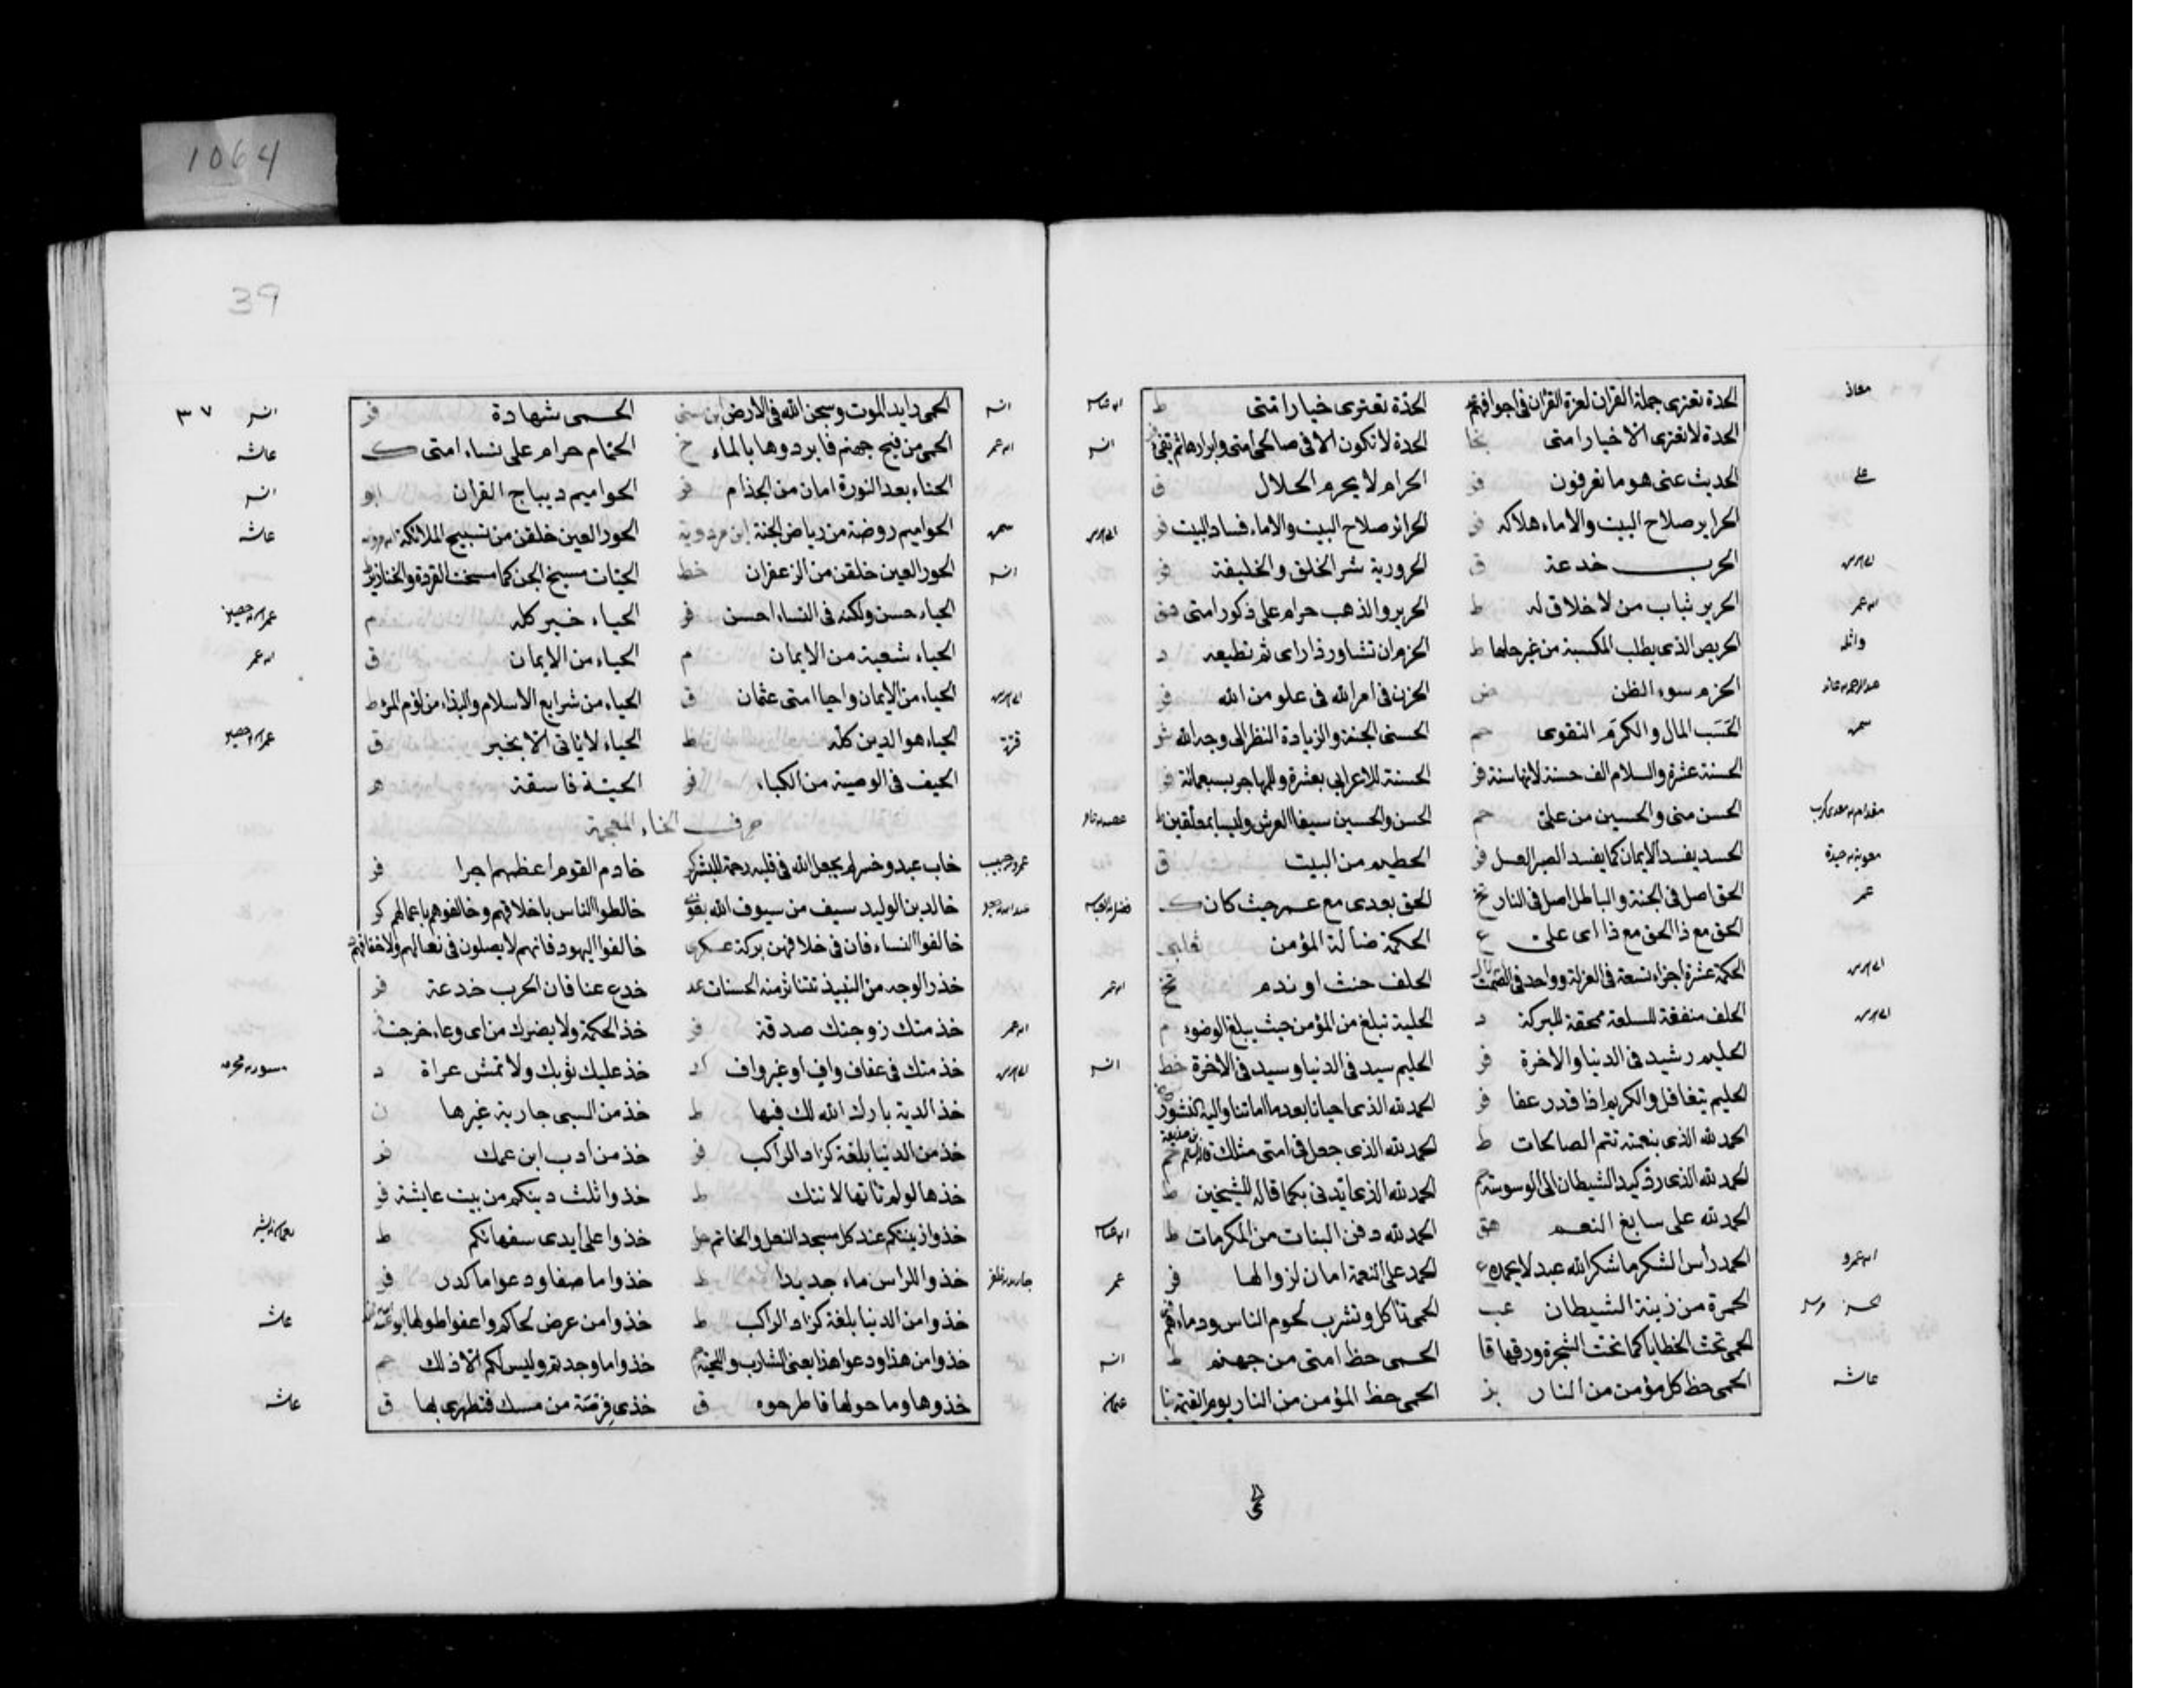 1064
معاذ
الحدة تعتري حملة القران لعزة القران في اجوافهم
الحدة تعتري خيار امتى ط
الحدة لا تعتري الا خيار امتى
الحدة لا تكون الا في صالحى امتى وابرارها ثم تفئ
انس
على
الحديث عنى هو ما تعرفون فر
الحرام لا يحرم الحلال ق
الحراير صلاح البيت والاماء هلاكه فر
الحرائر صلاح البيت والاماء فساد البيت فر
الحرب خدعة ق
الحرورية شر الخلق والخليقة فر
ابن عمر
الحرير ثياب من لا خلاق له ط
الحرير والذهب حرام على ذكور امتى هق
واثله
الحريص الذى يطلب المكسبة من غير حلها ط
الحزم ان تشاور ذا راى ثم تطيعه د
الحزم سوء الظن ض
الحزن في امر الله في علو من الله فر
الحسب المال والكرم التقوى حم
الحسنى الجنة والزيادة النظر الى وجه الله
الحسنة عشرة والسلام الف حسنة لانها سنة فر
الحسنة للاعرابى بعشرة وللمهاجر بسبعمائة فر
الحسن منى والحسين من على حم
الحسن والحسين سيفا العرش وليسا بمعلقين ط
الحسد يفسد الايمان كما يفسد الصبر العسل فر
الحطيم من البيت ق
عمر
الحق اصل في الجنة والباطل اصل في النار تخ
الحق بعدى مع عمر حيث كان ك
الحق مع ذا الحق مع ذا اى على ع
الحكمة ضالة المؤمن
الحكمة عشرة اجزاء تسعة في العزلة وواحد في الصمت
الحلف حنث او ندم تخ
ابن عمر
الحلف منفقة للسلعة ممحقة للبركة د
الحلية تبلغ من المؤمن حيث يبلغ الوضوء م
الحليم رشيد في الدنيا والاخرة فر
الحليم سيد في الدنيا وسيد في الاخرة خط
انس
الحليم يتغافل والكريم اذا قدر عفا فر
الحمد لله الذى احيانا بعد ما اماتنا واليه النشور
الحمد لله الذى بنعمته تتم الصالحات ط
الحمد لله الذى جعل في امتى مثلك
الحمد لله الذى رد كيد الشيطان الى الوسوسة حم
الحمد لله الذى ايدنى بكما قاله للشيخين ط
الحمد لله على سابغ النعم هق
الحمد لله دفن البنات من المكرمات ط
ابن عمرو
الحمد رأس الشكر ما شكر الله عبد لا يحمده
الحمد على النعمة امان لزوالها فر
عمر
الحمرة من زينة الشيطان عب
الحمى تاكل وتشرب لحوم الناس ودماءهم
الحمى تحت الخطايا كما تحت الشجرة ورقها قا
الحمى حظ امتى من جهنم ط
انس
عائشة
الحمى حظ كل مؤمن من النار بز
الحمى حظ المؤمن من النار يوم القيمة
39
٣٧
انس
الحمى رايد الموت وسجن الله في الارض ابن سنى
الحمى شهادة فر
انس
ابن عمر
الحمى من فيح جهنم فابردوها بالماء خ
الحمام حرام على نساء امتى ك
عائشة
الحناء بعد النورة امان من الجذام فر
الحواميم ديباج القران ابو
انس
الحواميم روضة من رياض الجنة ابن مردوية
الحور العين خلقن من تسبيح الملائكة
عائشة
انس
الحور العين خلقن من الزعفران خط
الحيات مسيخ الجن كما مسخت القردة والخنازير
الحياء حسن ولكنه في النساء احسن فر
الحياء خير كله م
عمران بن حصين
الحياء شعبة من الايمان م
الحياء من الايمان ق
ابن عمر
الحياء من الايمان واحيا امتى عثمان ق
الحياء من شرايع الاسلام والبذاء من لؤم المرء ط
قرة
الحياء هو الدين كله ط
الحياء لا ياتى الا بخير ق
عمران بن حصين
الحيف في الوصية من الكباير فر
الحية فاسقة ه
حرف الخاء المعجمة
خاب عبد وخسر لم يجعل الله في قلبه رحمة للبشر
خادم القوم اعظمهم اجرا فر
خالد بن الوليد سيف من سيوف الله
خالطوا الناس باخلاقهم وخالفوهم باعمالهم
خالفوا النساء فان في خلافهن بركة عسكرى
خالفوا اليهود فانهم لا يصلون في نعالهم ولا خفافهم
خدر الوجه من النبيذ تتناثر منه الحسنات
خدع عنا فان الحرب خدعة فر
ابن عمر
خدمتك زوجتك صدقة فر
خذ الحكمة ولا يضرك من اى وعاء خرجت
خذ حقك في عفاف واف او غير واف
خذ عليك ثوبك ولا تمش عراة د
خذ الدية بارك الله لك فيها ط
خذ من السبى جارية غيرها ن
خذ من الدنيا بلغة كزاد الراكب فر
خذ من ادب ابن عمك فر
خذها لو لم تاتها لاتتك ط
خذوا ثلث دينكم من بيت عايشة فر
خذوا زينتكم عند كل مسجد النعل والخاتم
خذوا على ايدى سفهائكم ط
خذوا للراس ماء جديدا ط
خذوا ما صفا ودعوا ما كدر فر
خذوا من الدنيا بلغة كزاد الراكب ط
خذوا من عرض لحاكم واعفوا طولها
عائشة
خذوا من هذا ودعوا هذا يعنى الشارب واللحية
خذوا ما وجدتم وليس لكم الا ذلك حم
خذوها وما حولها فاطرحوه ق
خذى فرصة من مسك فتطهرى بها ق
عائشة